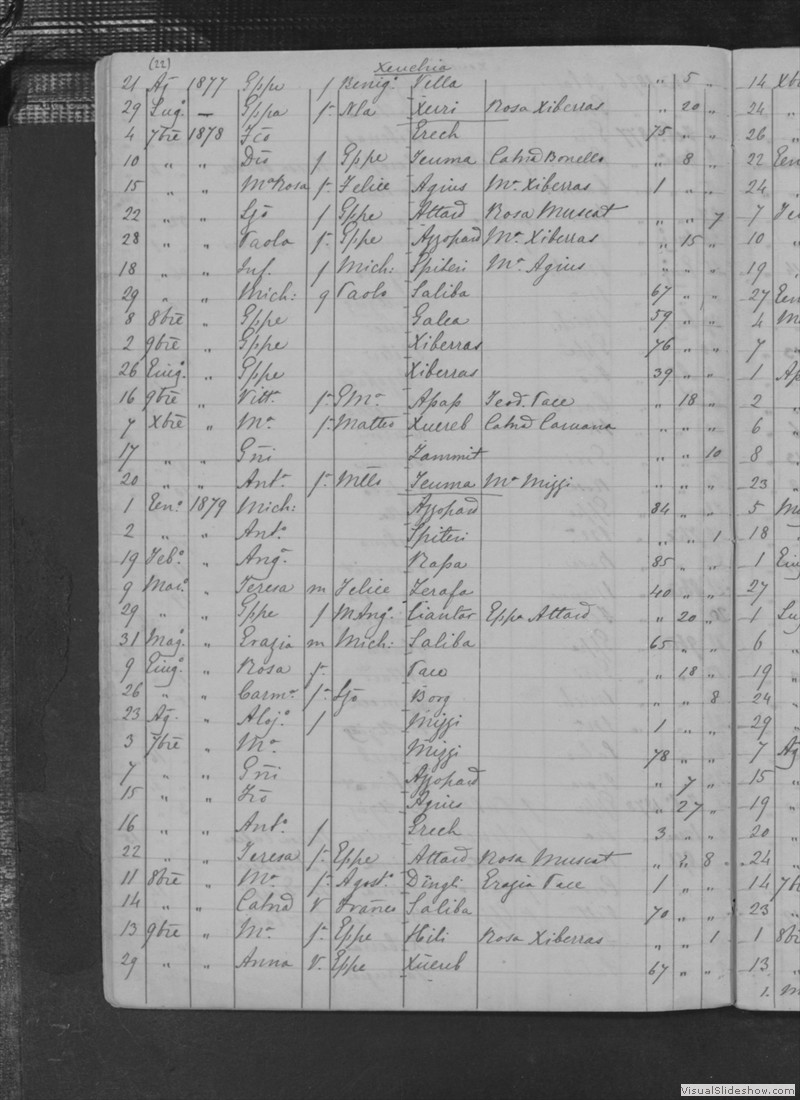 (22)
Xeuchia
21 Ag 1877 Gppe f Benig. Vella " 5 " 14 Xbr
29 Lug. — Gppa f. Nla Xuri Rosa Xiberras " 20 " 24 "
4 7bre 1878 Fco Grech 75 " " 26 "
10 " " Dio f Gppe Teuma Catnd Bonello " 8 " 22 Gen
15 " " Ma Rosa f. Felice Agius Ma Xiberras 1 " " 24 "
22 " " Sjo f Gppe Attard Rosa Muscat " " 7 7 Fe
28 " " Paola f. Gppe Azzopard Ma Xiberras " 15 " 10 "
18 " " Inf. f Mich: Spiteri Ma Agius " " " 19
29 " " Mich: q Paolo Saliba 67 " " 27 Gen
8 8bre " Gppe Galea 59 " " 4 M
2 9bre " Gppe Xiberras 76 " " 7 "
26 Giug. " Gppe Xiberras 39 " " 1 Ap
16 9bre " Vitt. f. GMa Apap Teod. Pace " 18 " 2 "
7 Xbre " Ma f. Matteo Xuereb Catnd Caruana " " " 6 "
17 " " Gni Zammit " " 10 8 "
20 " " Anta f. Mtto Teuma Ma Mizzi " " " 23
1 Gen. 1879 Mich: Azzopard 84 " " 5 M
2 " " Anto Spiteri " " 1 18
19 Feb. " Ang. Rapa 85 " " 1 Giu
9 Mar. " Teresa m Felice Zerafa 40 " " 27
29 " " Gppe f MAng. Ciantar Gppa Attard " 20 " 1 Lu
31 Mag. " Grazia m Mich: Saliba 65 " " 6 "
9 Giug. " Rosa f. Pace " 18 " 19 "
26 " " Carma f. Sjo Borg " " 8 24 "
23 Ag. " Aloj. f Mizzi 1 " " 29 "
3 7bre " Ma Mizzi 78 " " 7 Ag
7 " " Gni Azzopard " 7 " 15 "
15 " " Fco Agius " 27 " 19 "
16 " " Anto f Grech 3 " " 20 "
22 " " Teresa f. Gppe Attard Rosa Muscat " 2 8 24 "
11 8bre " Ma f. Agost. Dingli Grazia Pace 1 " " 14 7b
14 " " Catnd V Franco Saliba 70 " " 23 "
13 9bre " Ma f. Gppe Hili Rosa Xiberras " " 1 1 8b
29 " " Anna V. Gppe Xuereb 67 " " 13 "
1. M
VisualSlideshow.com